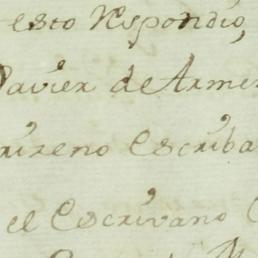 esto Respondio,
Xavier de Armen
rizeno Escriba
el Escrivano